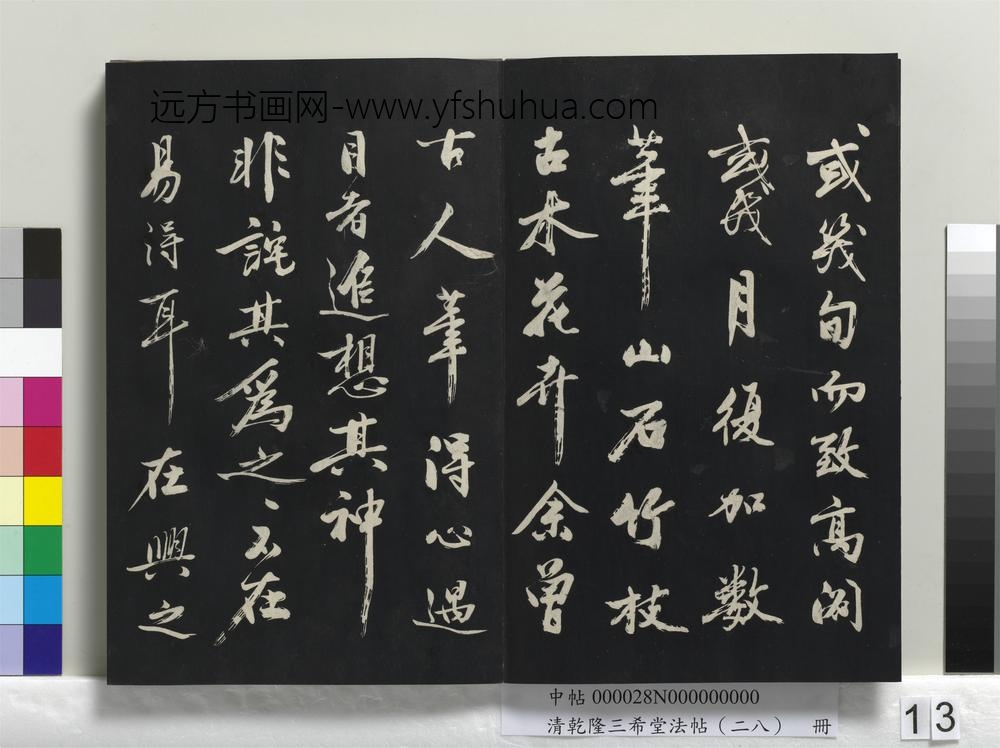 远方书画网-www.yfshuhua.com
或幾旬而致高閣
或幾月復加數
筆山石竹枝
古木花卉余曾
古人筆得心過
目者追想其神
非說其為之之不在
易得耳在興之
中帖 000028N000000000
清乾隆三希堂法帖（二八） 冊
13